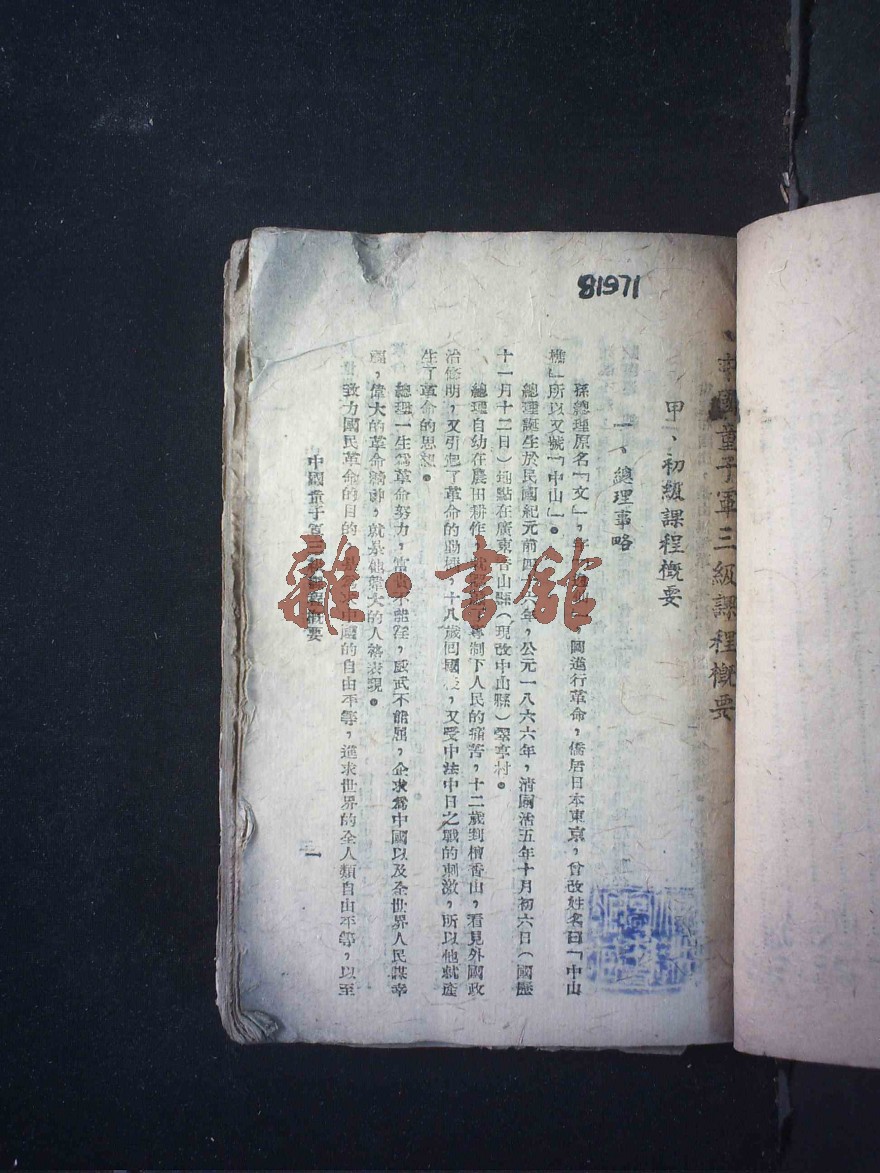 81971
中國童子軍三級課程概要
甲、初級課程概要
一、總理事略
孫總理原名「文」，
圖進行革命，僑居日本東京，曾改姓名曰「中山
樵」所以又號「中山」。
總理誕生於民國紀元前四
六年，公元一八六六年，清同治五年十月初六日（國歷
十一月十二日）地點在廣東香山縣（現改中山縣）翠亨村。
總理自幼在農田耕作，
專制下人民的痛苦，十二歲到檀香山，看見外國政
治修明，又引起了革命的動機，十八歲回國後，又受中法中日之戰的刺激，所以他就產
生了革命的思想。
總理一生爲革命努力，富貴不能淫，威武不能屈，企求爲中國以及全世界人民謀幸
福，偉大的革命精神，就是他偉大的人格表現。
致力國民革命的目的，
的自由平等，進求世界的全人類自由平等，以至
中國童子軍三級課程概要
一
雜·書館